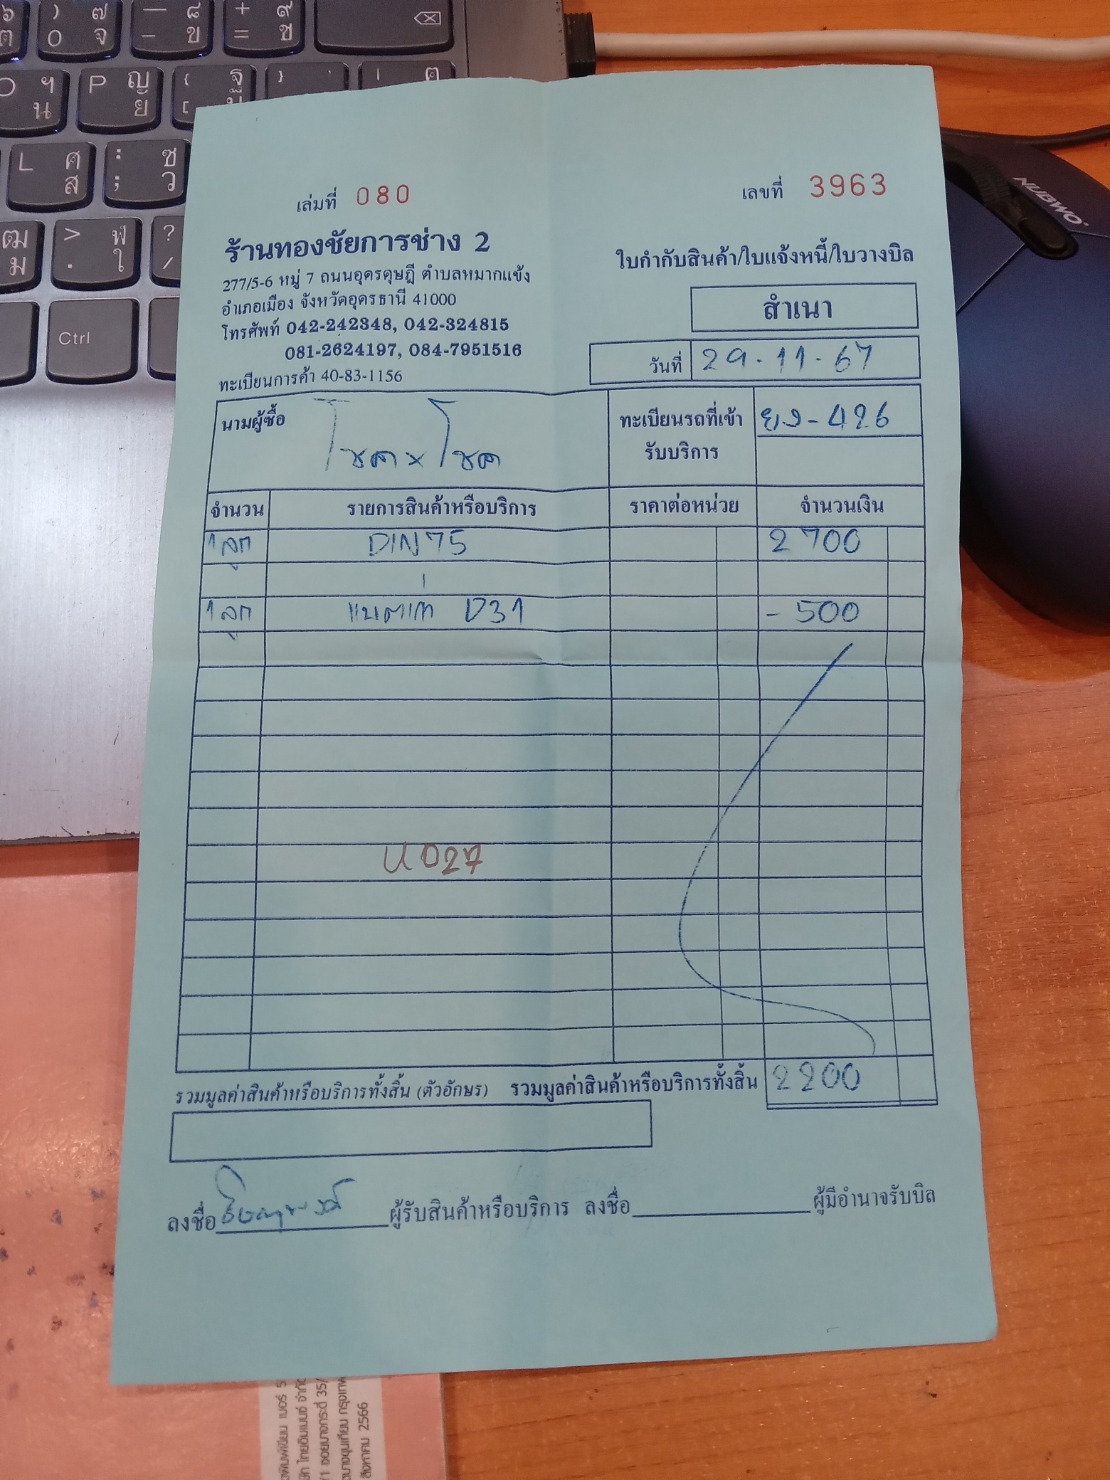 เล่มที่ 080
เลขที่ 3963
ร้านทองชัยการช่าง 2
277/5-6 หมู่ 7 ถนนอุดรดุษฎี ตำบลหมากแข้ง
อำเภอเมือง จังหวัดอุดรธานี 41000
โทรศัพท์ 042-242348, 042-324815
081-2624197, 084-7951516
ทะเบียนการค้า 40-83-1156
ใบกำกับสินค้า/ใบแจ้งหนี้/ใบวางบิล
สำเนา
วันที่ 29-11-67
นามผู้ซื้อ โชค x โชค
ทะเบียนรถที่เข้า
รับบริการ
ยง-426
จำนวน รายการสินค้าหรือบริการ ราคาต่อหน่วย จำนวนเงิน
1ลูก DIN75 2700
1ลูก แบตเก่า D31 -500
U027
รวมมูลค่าสินค้าหรือบริการทั้งสิ้น (ตัวอักษร) รวมมูลค่าสินค้าหรือบริการทั้งสิ้น 2200
ลงชื่อ ผู้รับสินค้าหรือบริการ ลงชื่อ ผู้มีอำนาจรับบิล
NUBWO
Ctrl
สิงหาคม 2566